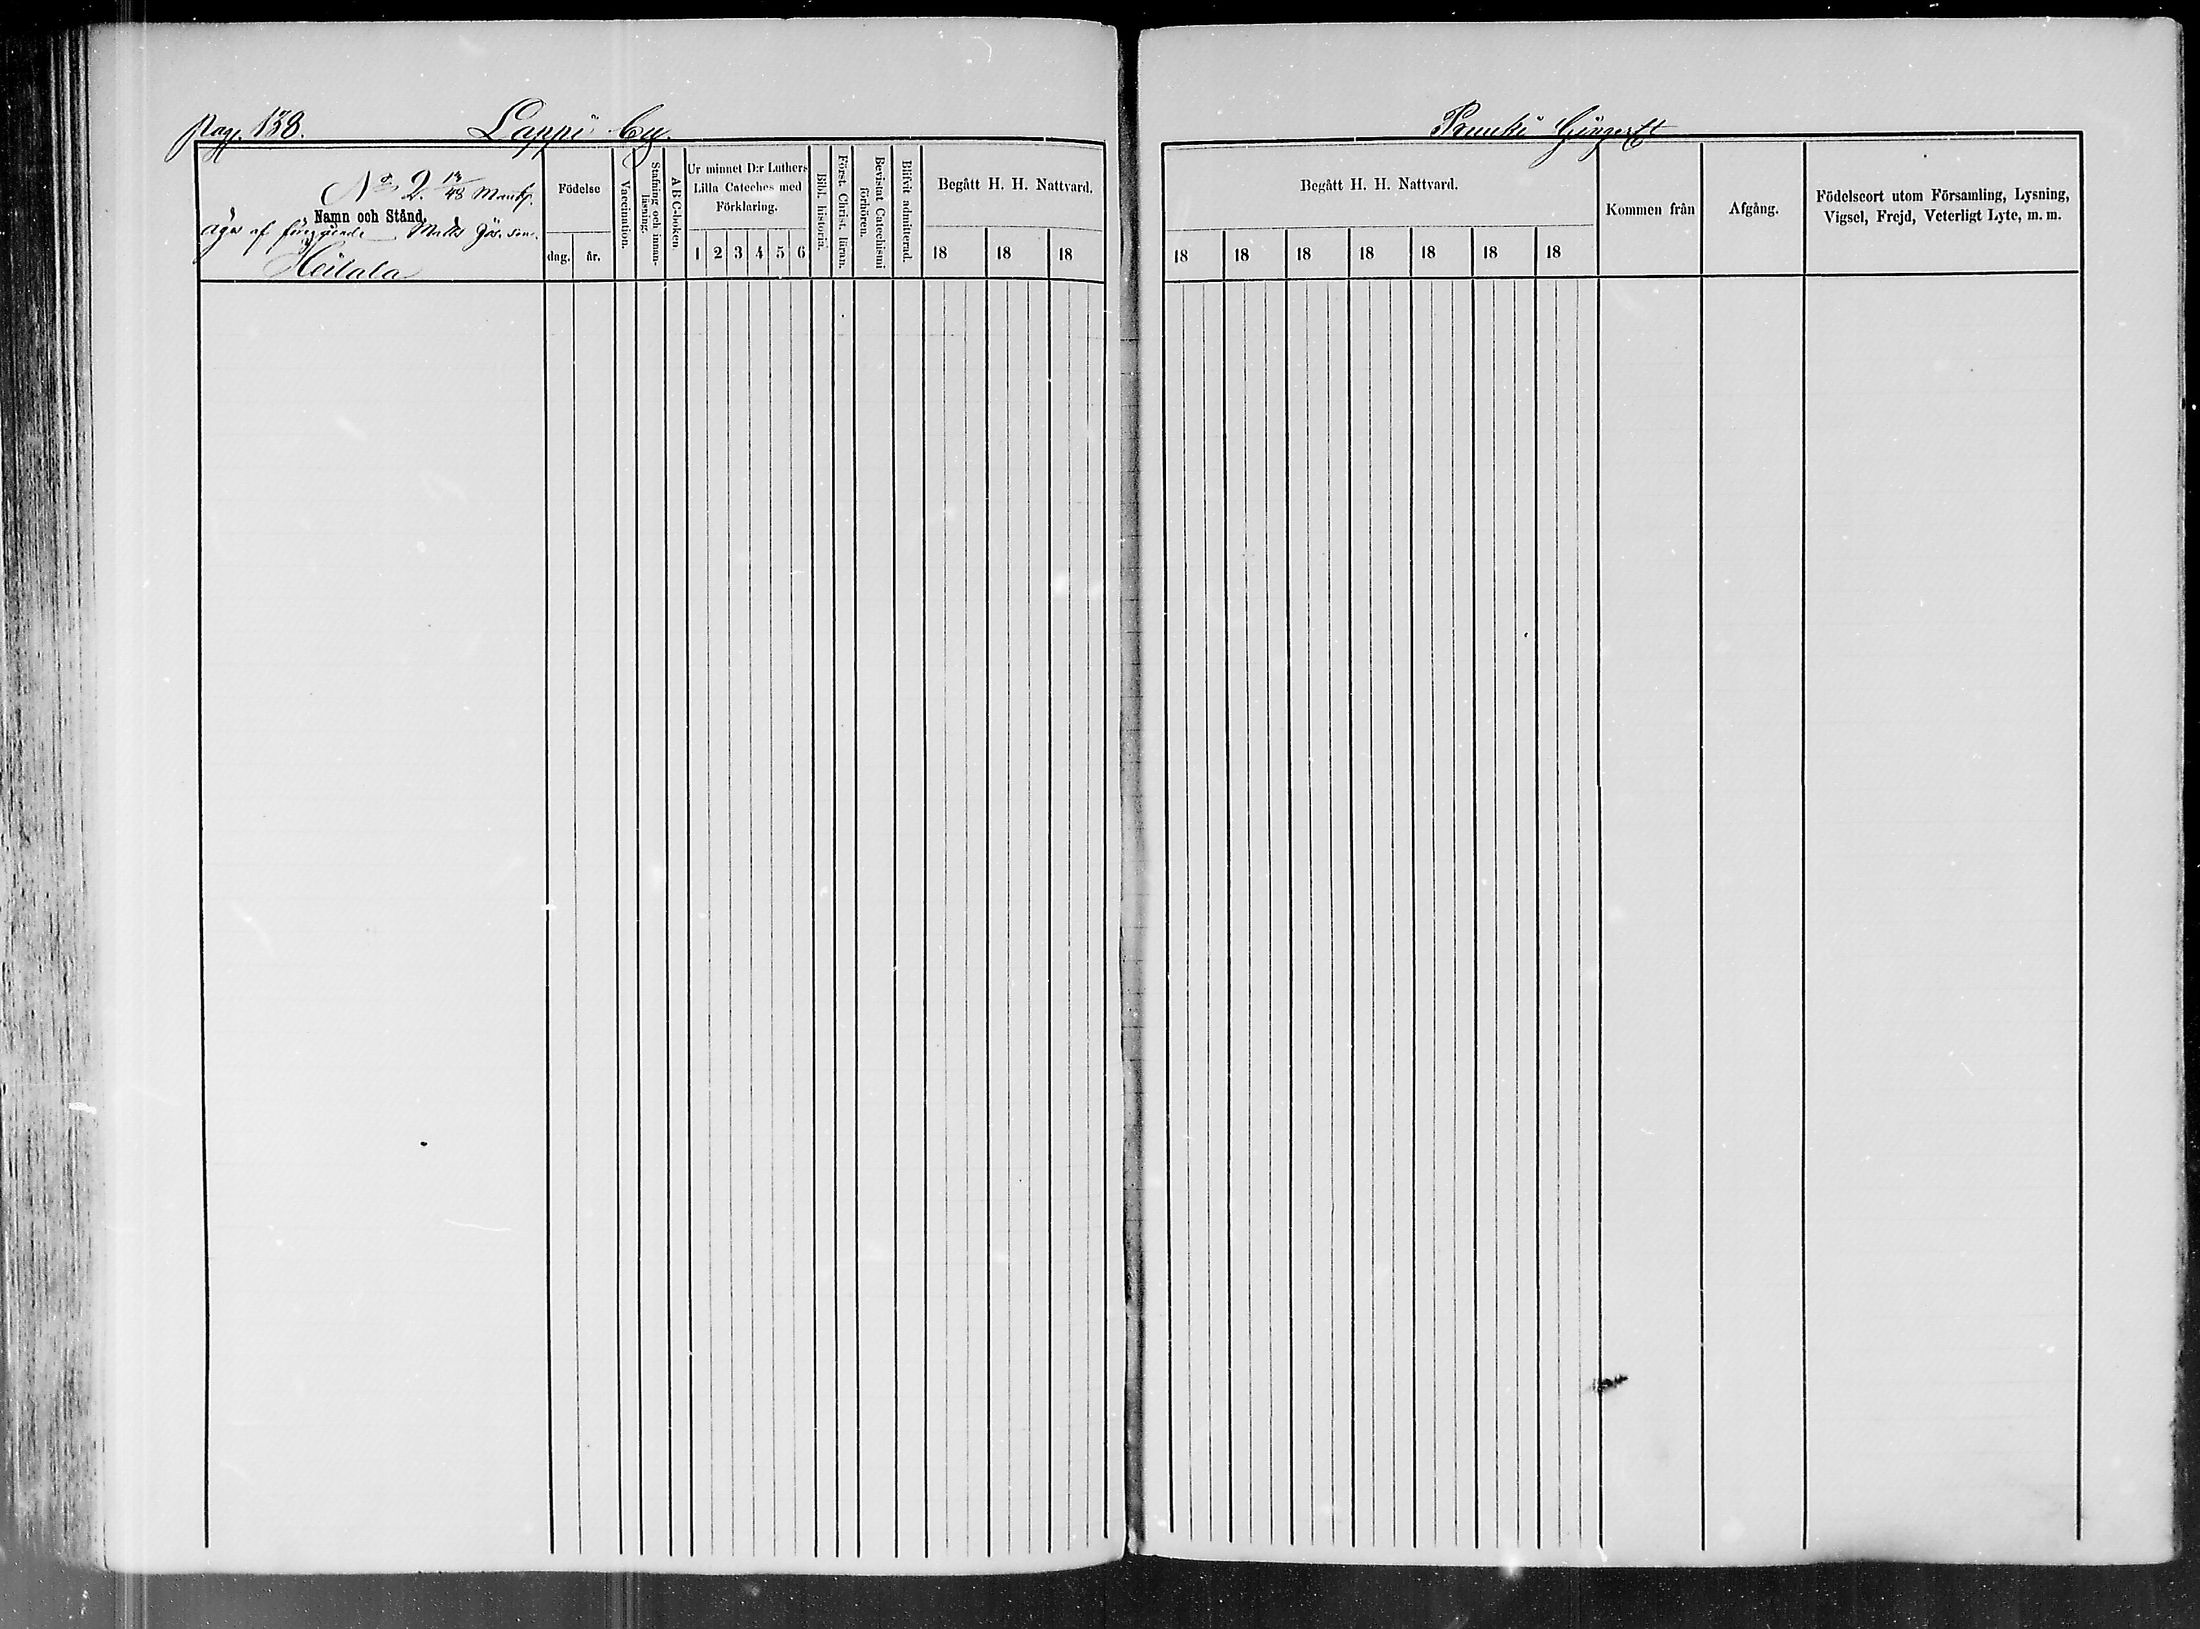 Pag. 138. Lappi by
No 2. 13/48 Mantl.
Namn och Stånd.
äges af föregående Matts Jös. son.
Heilala
Födelse
dag. år.
Vaccination.
Stafning och innan-
läsning.
A B C-boken.
Ur minnet D:r Luthers
Lilla Cateches med
Förklaring.
1 2 3 4 5 6
Bibl. historia.
Först. Christ. läran.
Bevistat Catechismi
förhören.
Blifvit admitterad.
Begått H. H. Nattvard.
18 18 18
Prunki
Begått H. H. Nattvard.
18 18 18 18 18 18 18
Kommen från
Afgång.
Födelseort utom Församling, Lysning,
Vigsel, Frejd, Veterligt Lyte, m. m.